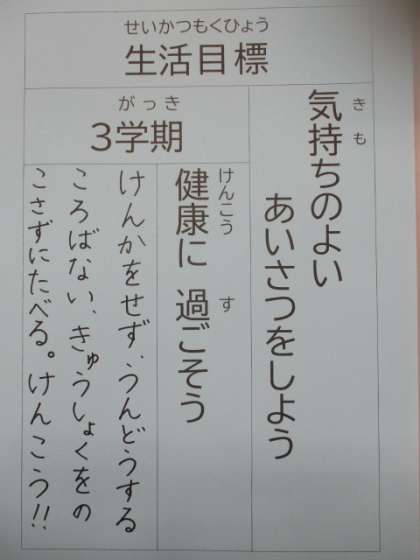 せいかつもくひょう
生活目標
きも
気持ちのよい
あいさつをしよう
がっき
3学期
けんこう す
健康に 過ごそう
けんかをせず、うんどうする
ころばない、きゅうしょくをの
こさずにたべる。けんこう!!